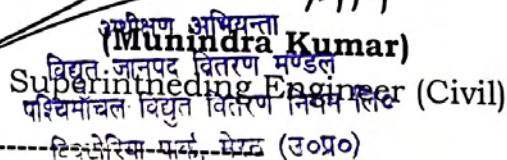 अधीक्षण अभियन्ता
(Munindra Kumar)
विद्युत जानपद वितरण मण्डल
Superintheding Engineer (Civil)
पश्चिमाँचल विद्युत वितरण निगम लि०
विक्टोरिया पार्क, मेरठ (उ०प्र०)